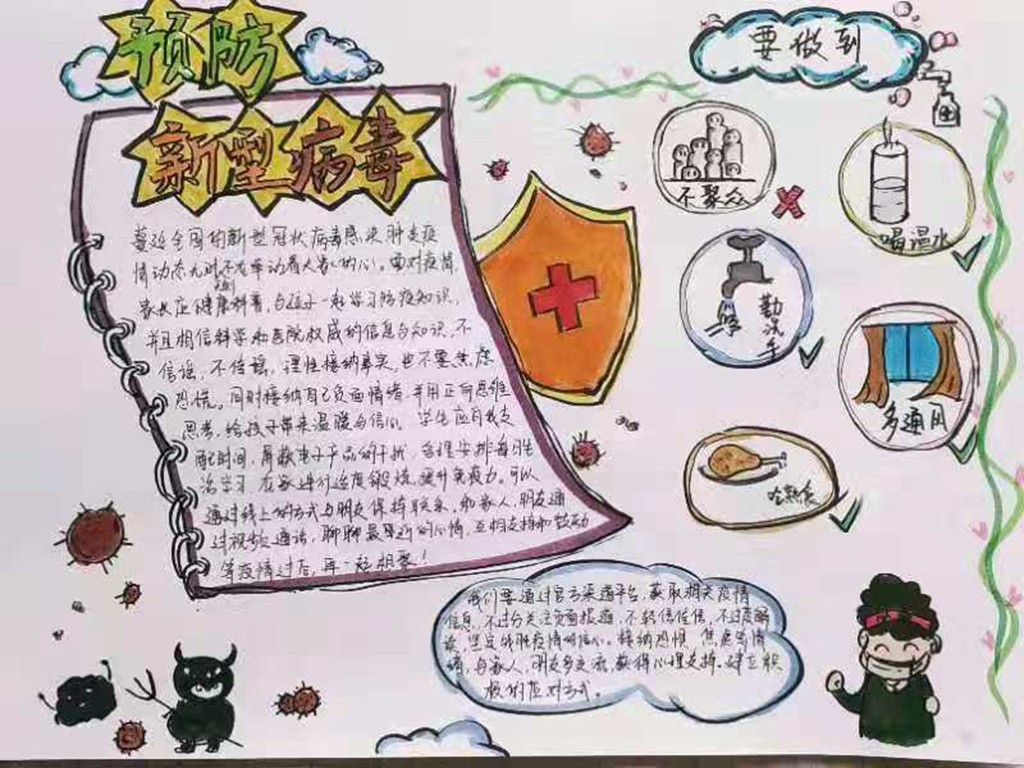 预防
新型病毒
蔓延全国的新型冠状病毒感染肺炎疫
情动态无时不在牵动着大家的心。面对疫情,
家长应健康科普,与孩子一起学习防疫知识,
并且相信科学和医院权威的信息与知识,不
信谣,不传谣,理性接纳事实,也不要焦虑
恐慌。同时接纳自己负面情绪,并用正向思维
思考,给孩子带来温暖与信心。学生应自我支
配时间,屏蔽电子产品的干扰,合理安排每日生
活学习,在家进行适度锻炼,提升免疫力。可以
通过线上的方式与朋友保持联系,和家人,朋友通
过视频通话,聊聊最近的心情,互相支持和鼓励
等疫情过后,再一起相聚!
要做到
不聚众
喝温水
勤洗手
多通风
吃熟食
我们要通过官方渠道平台,获取相关疫情
信息,不过分关注负面报道,不轻信任信,不过度解
读,坚定战胜疫情的信心。接纳恐惧,焦虑等情
绪,与家人,朋友多交流,获得心理支持,建立积
极的应对方式。